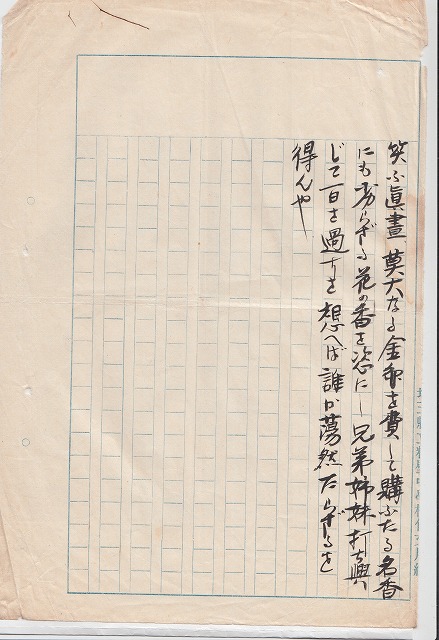 笑ふ眞晝、莫大なる金弗を費して購ふたる名香
にも劣らざる花の香を恣にし兄弟姉妹打ち興
じて一日を過ちを想へば誰か蕩然たらざるを
得んや